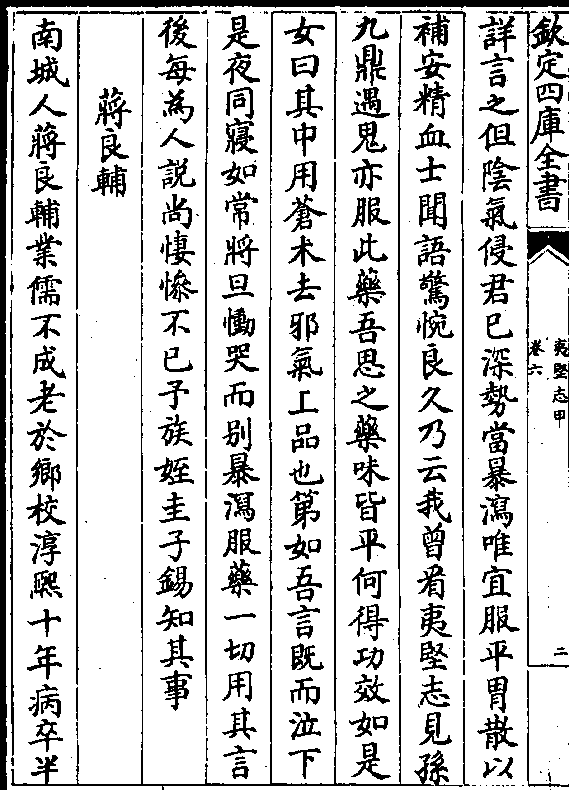 欽定四庫全書
夷堅志甲
卷六
二
詳言之但陰氣侵君已深勢當暴瀉唯宜服平胃散以
補安精血士聞語驚惋良久乃云我曾㸔夷堅志見孫
九鼎遇鬼亦服此藥吾思之藥味皆平何得功效如是
女曰其中用蒼术去邪氣上品也第如吾言既而泣下
是夜同寢如常將旦慟哭而别暴瀉服藥一切用其言
後每為人説尚悽慘不已予族姪圭子錫知其事
蔣良輔
南城人蔣良輔業儒不成老於鄉校淳熈十年病卒半